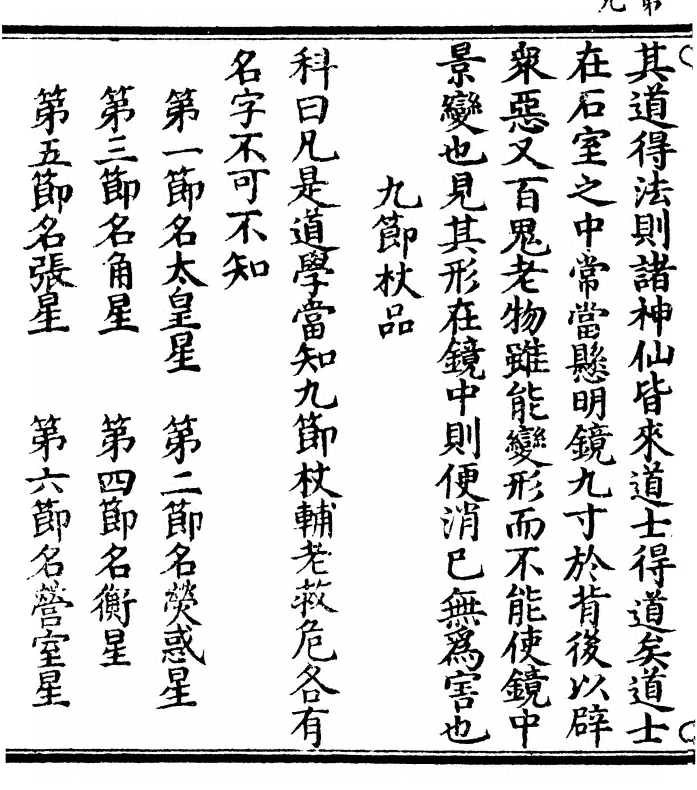 其道得法則諸神仙皆來道士得道矣道士
在石室之中常當懸明鏡九寸於背後以辟
衆惡又百鬼老物雖能變形而不能使鏡中
景變也見其形在鏡中則便消巳無爲害也
九節杖品
科曰凡是道學當知九節杖輔老救危各有
名字不可不知
第一節名太皇星 第二節名熒惑星
第三節名角星 第四節名衡星
第五節名張星 第六節名營室星